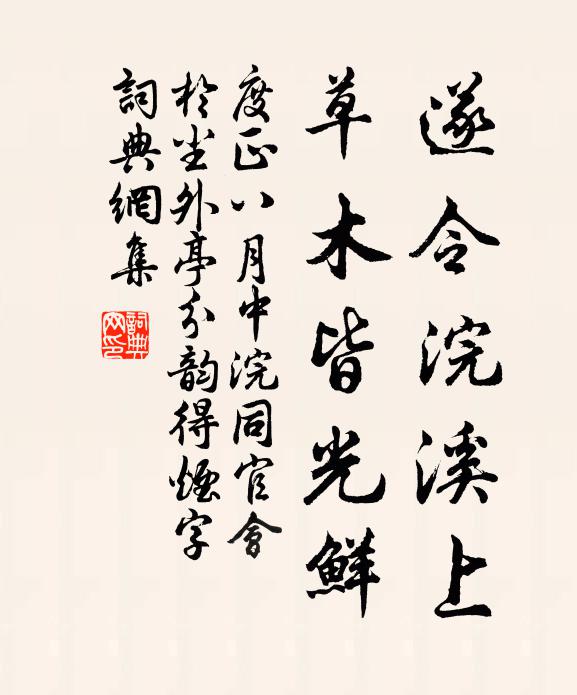 遂令浣溪上
草木皆光鮮
度正八月中浣同官會
於尘外亭分韵得烟字
詞典網集
詞典网印